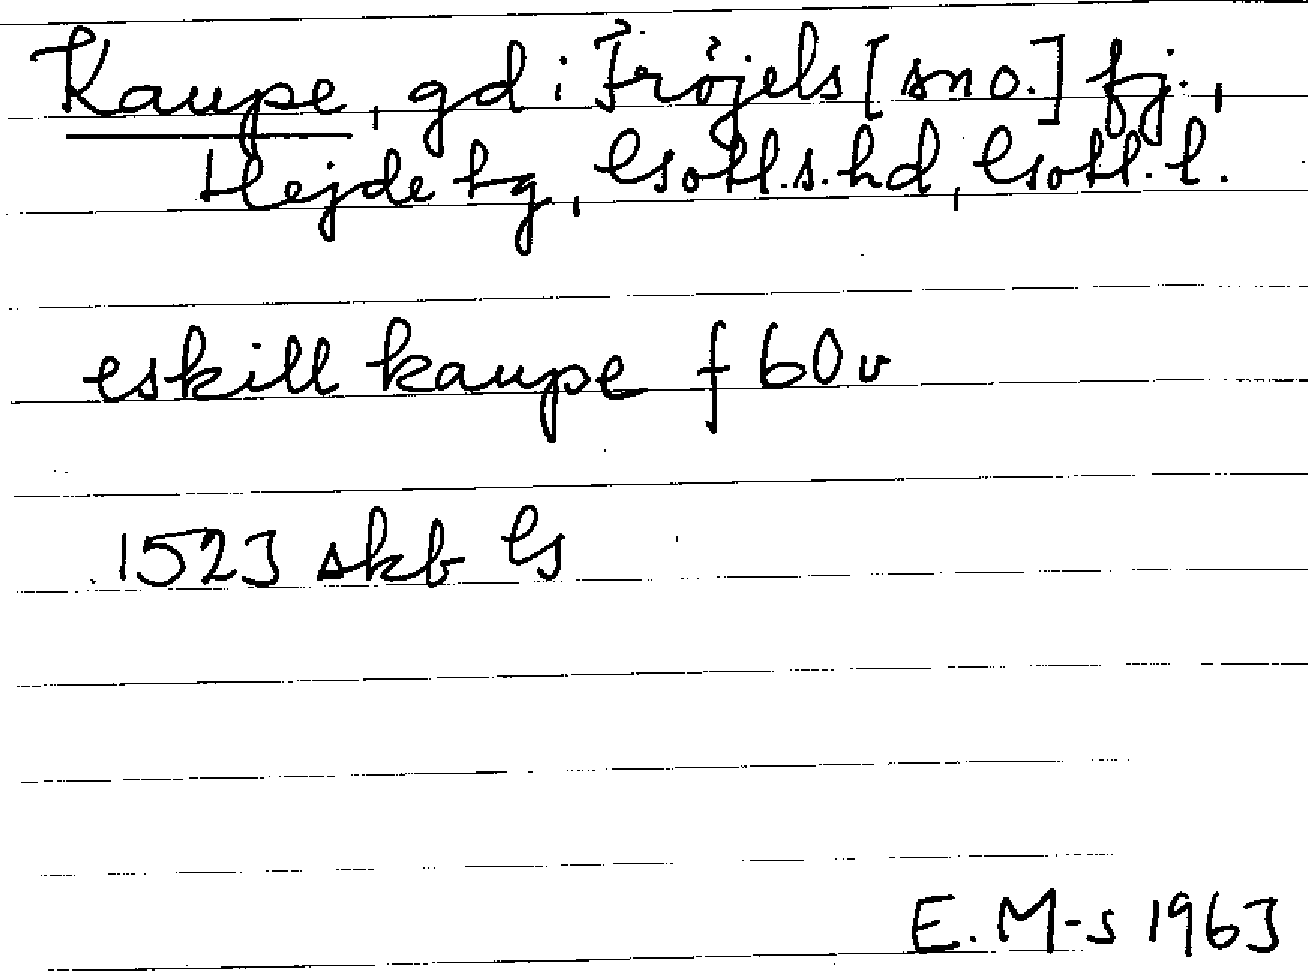 Kaupe, gd i Fröjels [sno.] fj.,
Hejde tg, Gotl.s.hd, Gotl. l.
eskill kaupe f 60 v
1523 skb G
E. M-s 1963